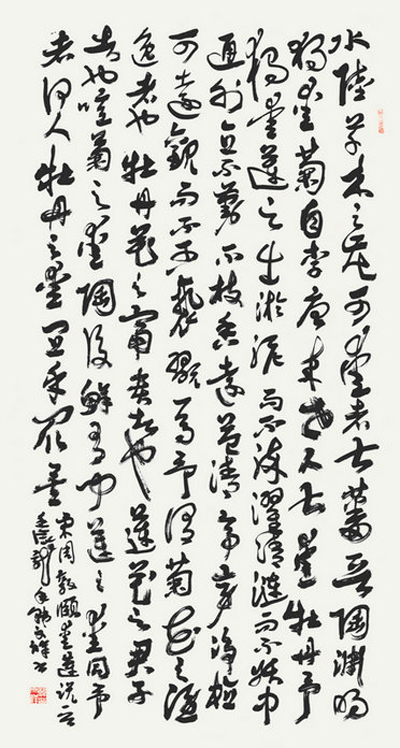 水陸草木之花可愛者甚蕃晉陶淵明
獨愛菊自李唐来世人甚愛牡丹予
獨愛蓮之出淤泥而不染濯清漣而不妖中
通外直不蔓不枝香遠益清亭亭淨植
可遠觀而不可褻翫焉予謂菊花之隱
逸者也牡丹花之富貴者也蓮花之君子
者也噫菊之愛陶後鮮有聞蓮之愛同予
者何人牡丹之愛宜乎眾矣
宋周敦頤愛蓮說